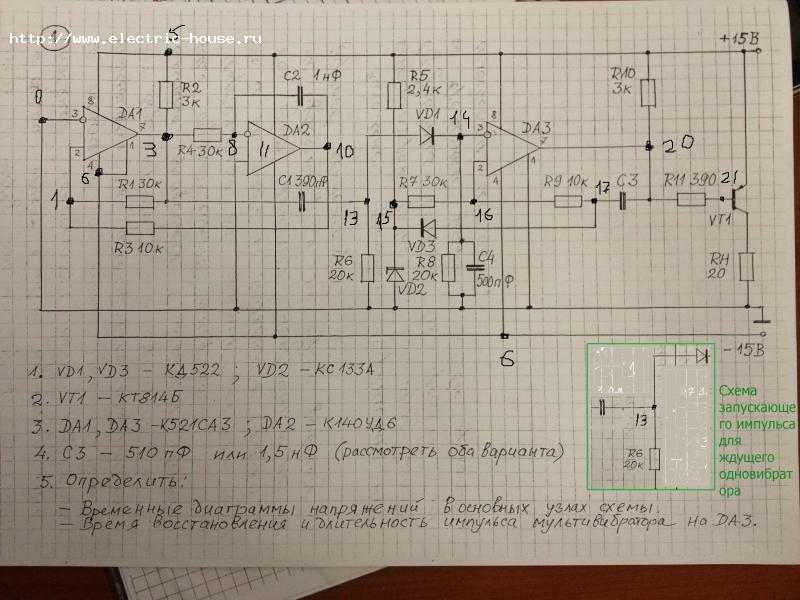 http://www.electric-house.ru
1
5
+15В
0
R2
3к
C2 1нФ
R5
2,4к
R10
3к
VD1
14
DA1
DA2
DA3
8
3
7
2
1
4
3
R4 30к
8
11
10
8
3
7
2
1
4
20
6
1
R1 30к
C1 390пФ
13
15
R7 30к
16
R9 10к
17
C3
R11 390
21
VT1
R3 10к
VD3
R6
20к
VD2
R8
20к
C4
500пФ
RН
20
6
-15В
1. VD1, VD3 - КД522 ; VD2 - КС133А
2. VT1 - КТ814Б
3. DA1, DA3 - К521СА3 ; DA2 - К140УД6
4. C3 - 510 пФ или 1,5нФ (рассмотреть оба варианта)
5. Определить:
- Временные диаграммы напряжений в основных узлах схемы.
- Время восстановления и длительность импульса мультивибратора на DA3.
13
R6
20к
Схема
запускающе
го импульса
для
ждущего
одновибрат
ора